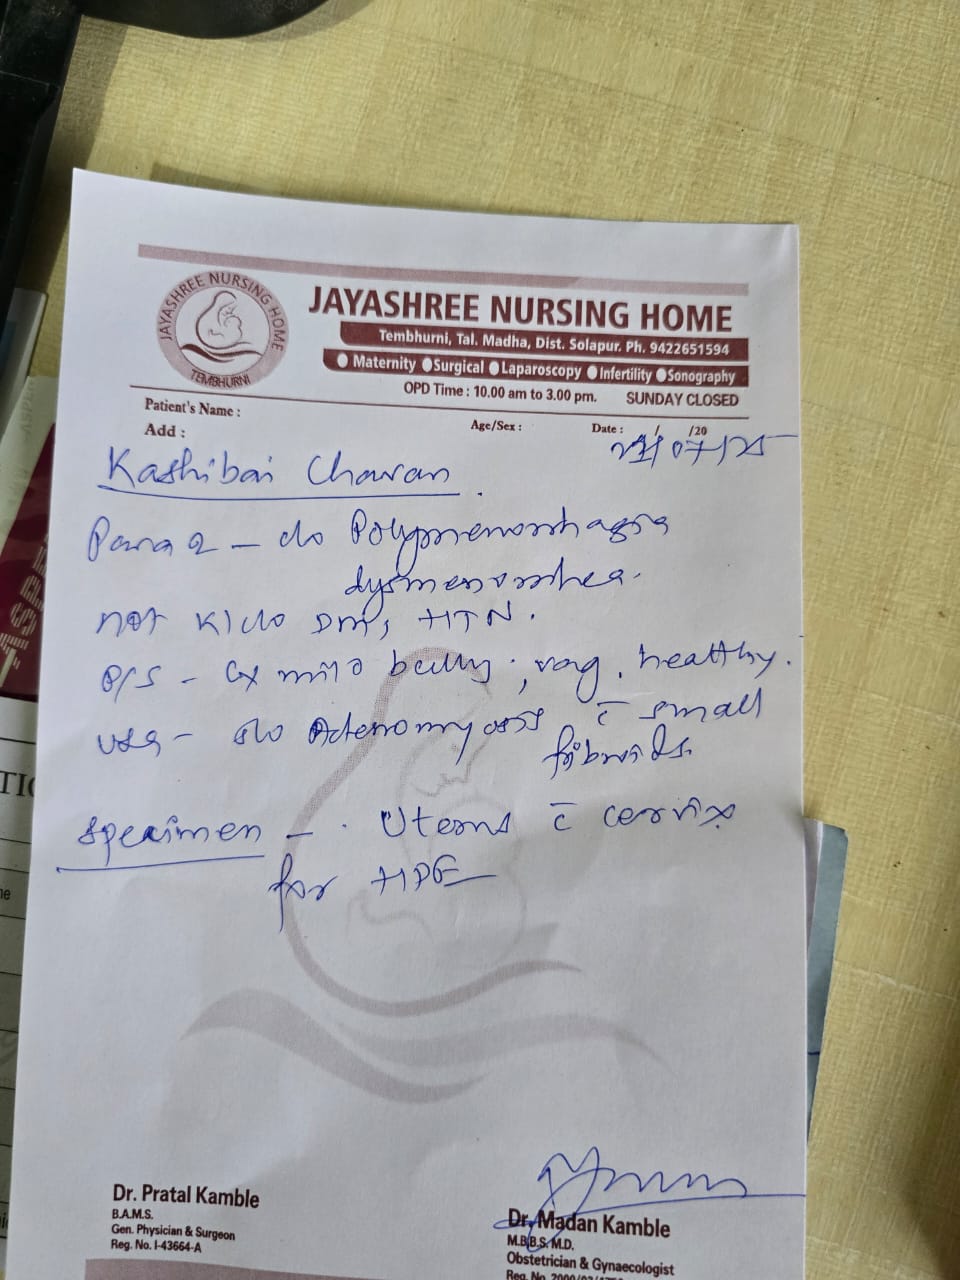 JAYASHREE NURSING HOME
TEMBHURNI
JAYASHREE NURSING HOME
Tembhurni, Tal. Madha, Dist. Solapur. Ph. 9422651594
Maternity Surgical Laparoscopy Infertility Sonography
OPD Time : 10.00 am to 3.00 pm. SUNDAY CLOSED
Patient's Name :
Add : Age/Sex : Date : / /20
/07/25
Kashibai Chavan
Para 2 - c/o Polymenorrhagia
dysmenorrhea.
not K/c/o DM, HTN.
P/S - Cx mild bulky, vag. healthy.
USG - s/o Adenomyosis c̄ small
fibroids.
Specimen - Uterus c̄ cervix
for HPE
Dr. Pratal Kamble
B.A.M.S.
Gen. Physician & Surgeon
Reg. No. I-43664-A
Dr. Madan Kamble
M.B.B.S. M.D.
Obstetrician & Gynaecologist
Reg. No.